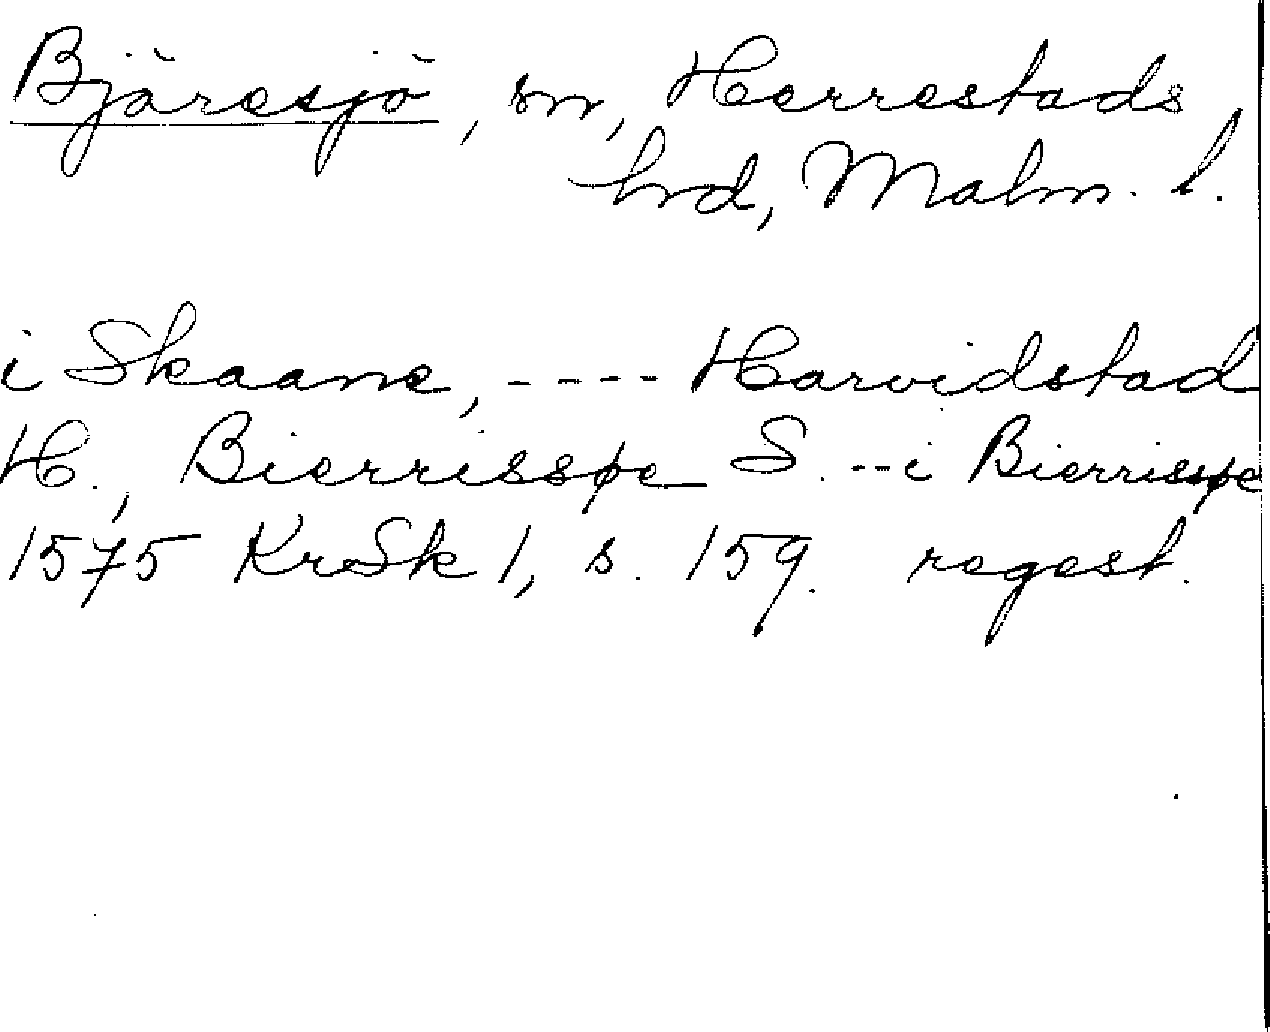 Bjäresjö, sn, Herrestads
hrd, Malm. l.
i Skaane, ---- Harvidstad
H., Bierrissøe S. --i Bierrissøe
1575 KrSk 1, s. 159. regest.